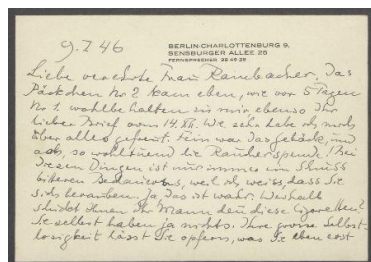 9.I 46
BERLIN-CHARLOTTENBURG 9,
SENSBURGER ALLEE 25
FERNSPRECHER 99 49 29
Liebe verehrte Frau Rambacher, Das
Päckchen Nr 2 kam eben, wie vor 5 Tagen
Nr 1. wohlbehalten zu mir, ebenso Ihr
lieber Brief vom 14. XII. Wie sehr habe ich mich
über alles gefreut. Fein war das Gebäck, und
ach, so wohltuend die Raucherspende! Bei
diesen Dingen ist nur immer ein Schuss
bitteren Bedauerns, weil ich weiss, dass Sie
sich berauben. Ja, das ist wahr. Weshalb
schickt Ihnen Ihr Mann denn diese Cigaretten?
Sie selbst haben ja nichts. Ihre grosse Selbst-
losigkeit lässt Sie opfern, was Sie eben erst